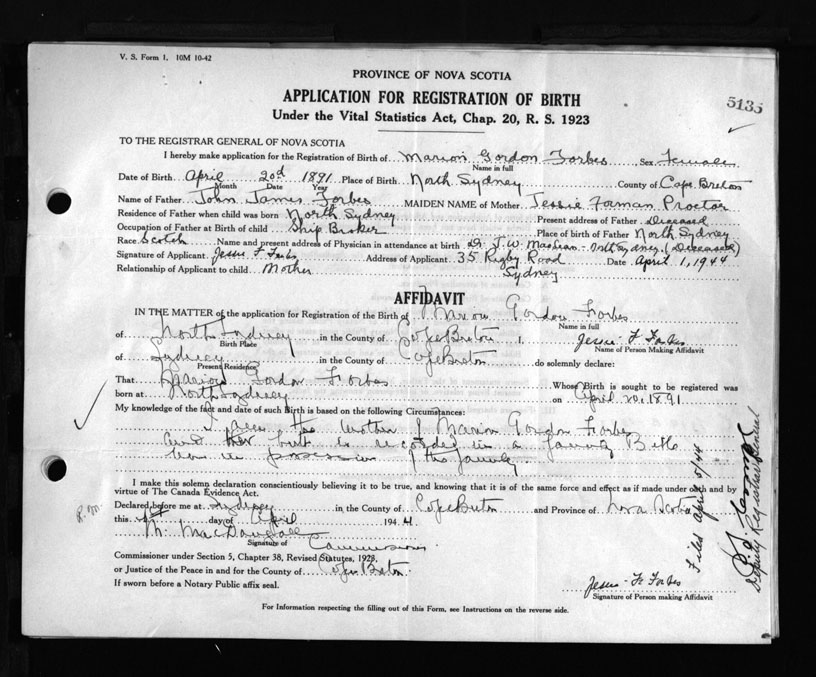 V. S. Form 1. 10M 10-42
PROVINCE OF NOVA SCOTIA
5135
APPLICATION FOR REGISTRATION OF BIRTH
Under the Vital Statistics Act, Chap. 20, R. S. 1923
TO THE REGISTRAR GENERAL OF NOVA SCOTIA
I hereby make application for the Registration of Birth of Marion Gordon Forbes Sex Female
Name in full
Date of Birth April 20d 1891 Place of Birth North Sydney County of Cape Breton
Month Date Year
Name of Father John James Forbes MAIDEN NAME of Mother Jessie Farnan Proctor
Residence of Father when child was born North Sydney Present address of Father Deceased
Occupation of Father at Birth of child Ship Broker Place of birth of Father North Sydney
Race Scotch Name and present address of Physician in attendance at birth Dr J. W. - North Sydney (Deceased)
Signature of Applicant Jessie F Forbes Address of Applicant 35 Rigby Road Date April 1, 1944
Relationship of Applicant to child Mother Sydney
AFFIDAVIT
IN THE MATTER of the application for Registration of the Birth of Marion Gordon Forbes
Name in full
of North Sydney in the County of Cape Breton I, Jessie F Forbes
Birth Place Name of Person Making Affidavit
of Sydney in the County of Cape Breton do solemnly declare:
Present Residence
That Marion Gordon Forbes Whose Birth is sought to be registered was
born at North Sydney on April 20, 1891
My knowledge of the fact and date of such Birth is based on the following Circumstances:
I am the mother of Marion Gordon Forbes
and her birth is recorded in a family Bible
now in possession of the family.
I make this solemn declaration conscientiously believing it to be true, and knowing that it is of the same force and effect as if made under oath and by
virtue of The Canada Evidence Act.
Declared before me at Sydney in the County of Cape Breton and Province of Nova Scotia
this 1st day of April 1944
MacDougall
Signature of Commissioner
Commissioner under Section 5, Chapter 38, Revised Statutes, 1923,
or Justice of the Peace in and for the County of Cape Breton
If sworn before a Notary Public affix seal.
Jessie F Forbes
Signature of Person making Affidavit
For Information respecting the filling out of this Form, see Instructions on the reverse side.
Filed April 5/44
Deputy Registrar General